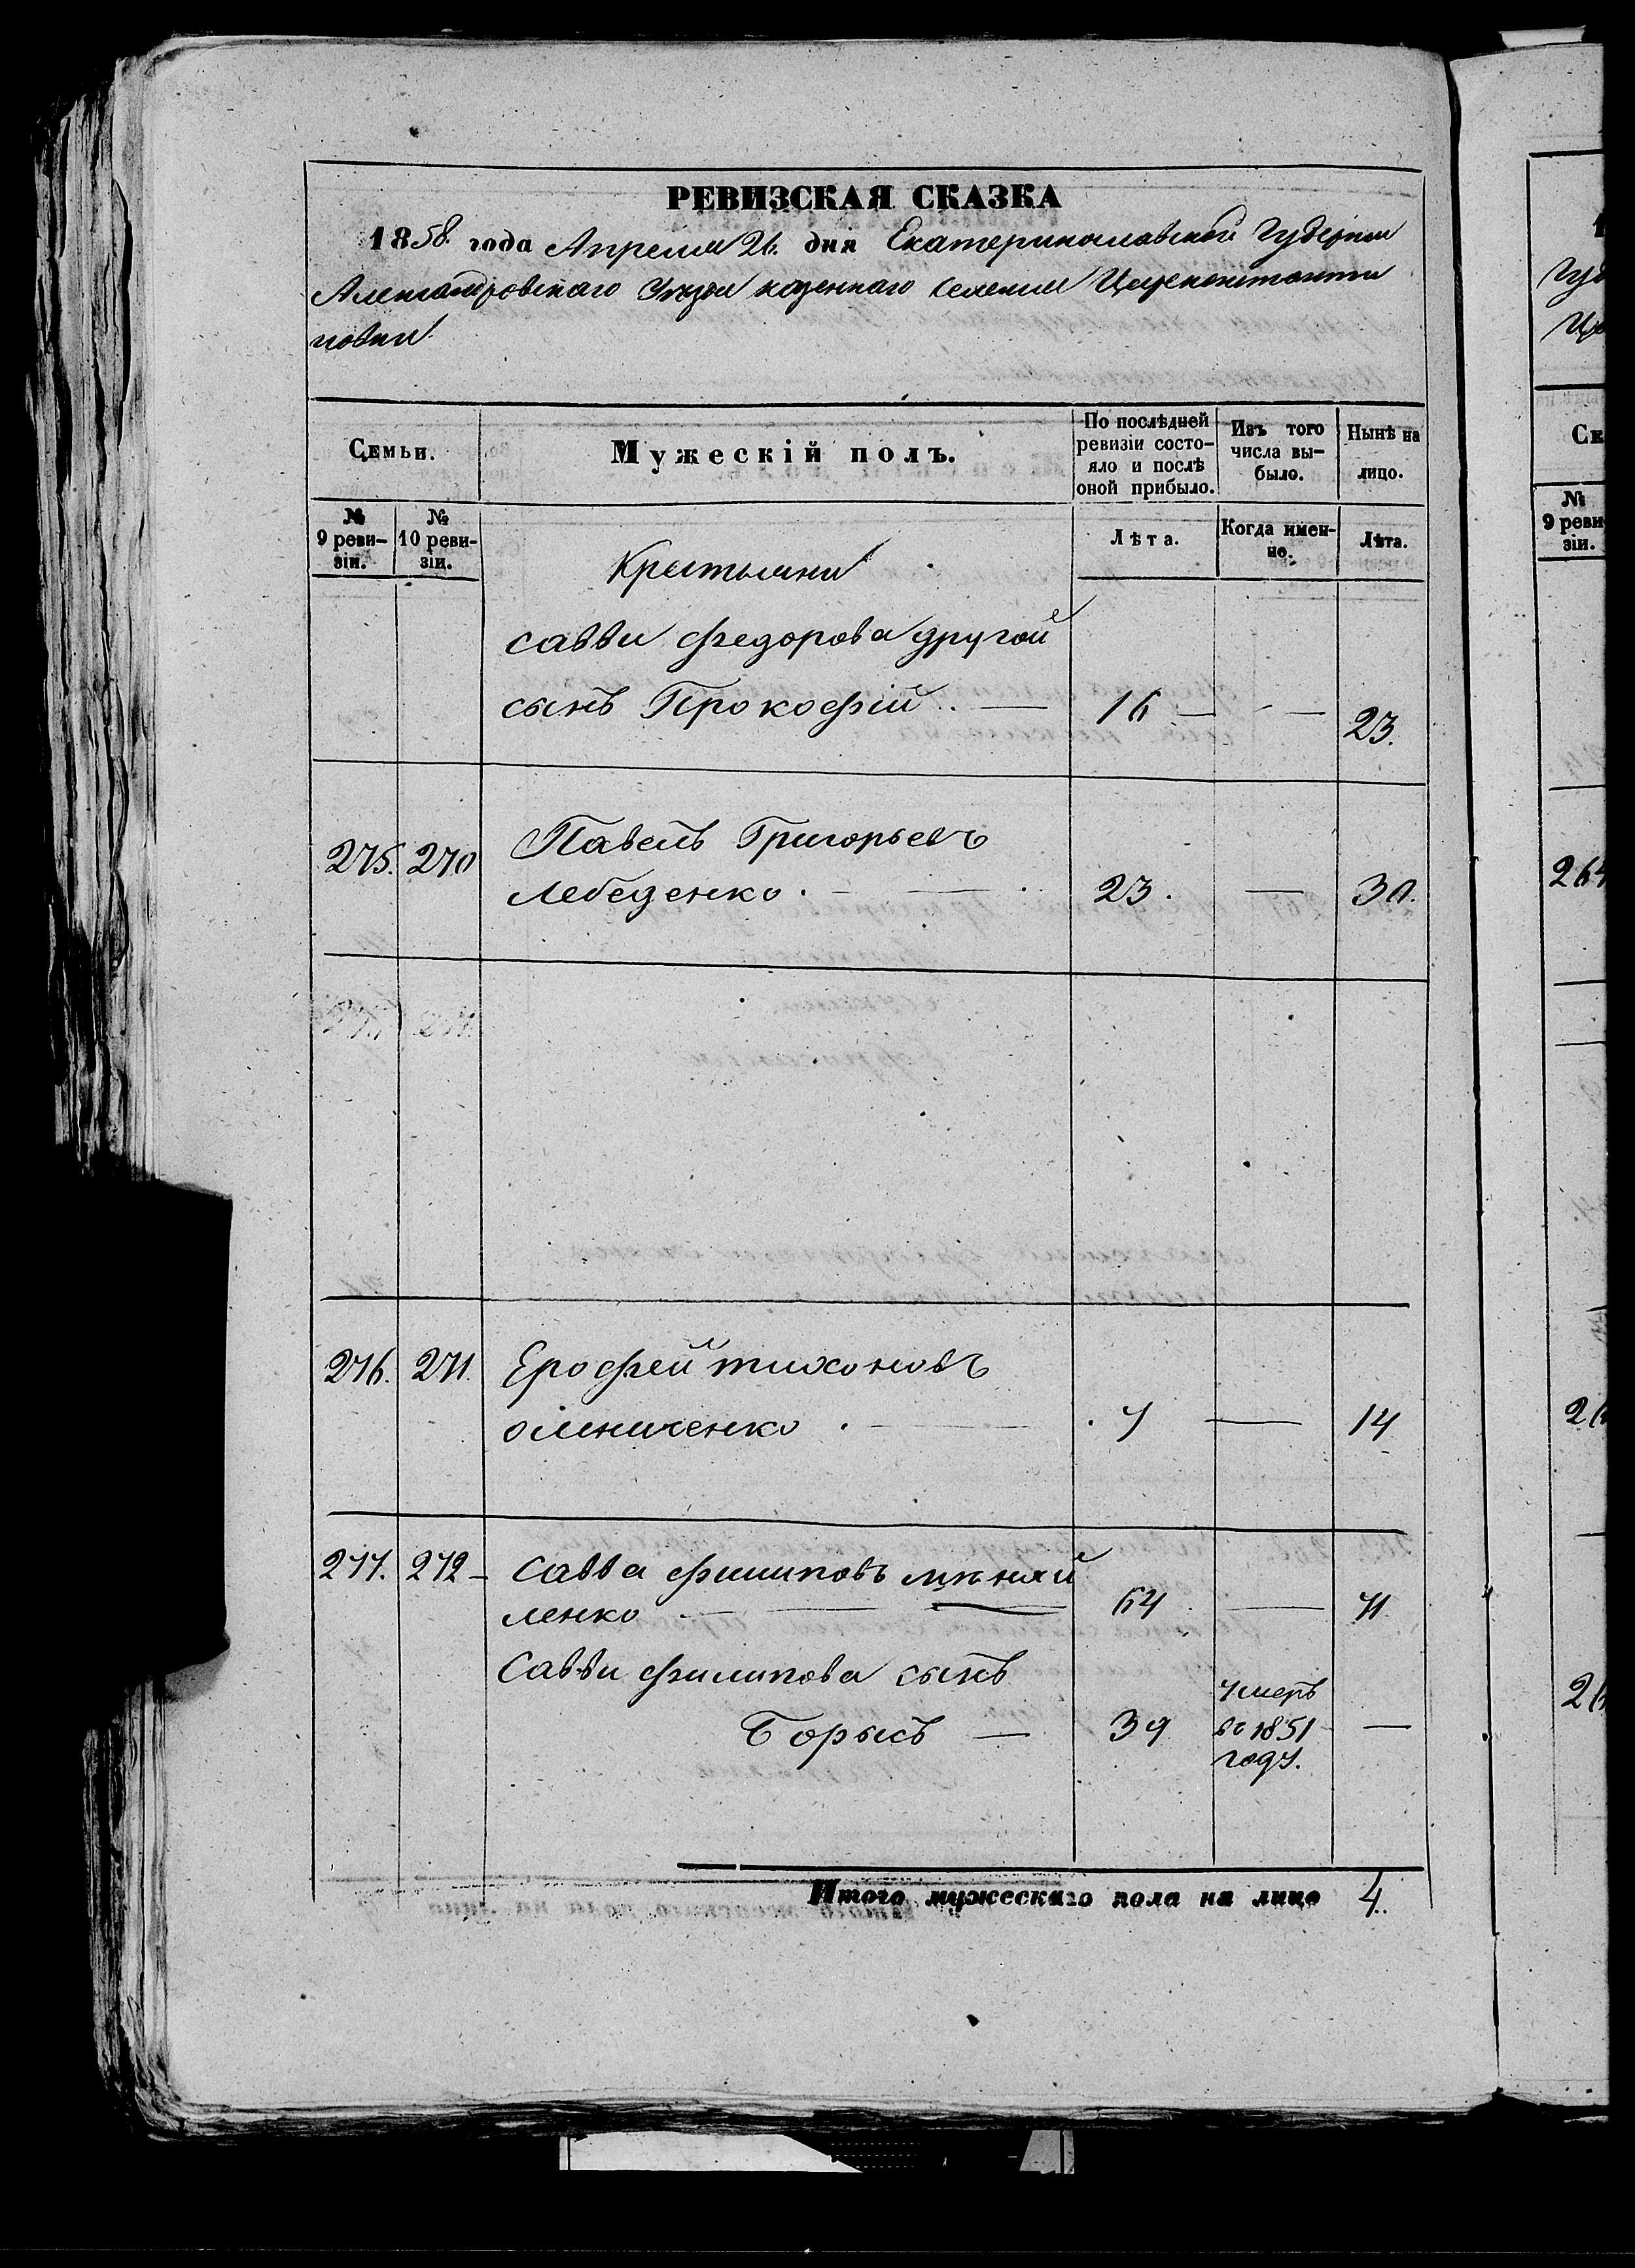 РЕВИЗСКАЯ СКАЗКА
1858. года Апреля 26. дня Екатеринославской Губернии
Александровскаго Уезда казеннаго селения Цареконстанти
новки
Семьи.
Мужескій полъ.
По послѣдней ревизіи состо-
яло и послѣ
оной прибыло.
Изъ того
числа вы-
было.
Нынѣ на
лицо.
№
9 реви-
зіи.
№
10 реви-
зіи.
Лѣта.
Когда имен-
но.
Лѣта.
Крестьяни
Савви Федорова другой
сынъ Прокофій. — 16 — — 23.
275. 270 Павелъ Григорьевъ
Лебеденко. — 23. — 30.
276. 271. Ерофей Тихоновъ
Олениченко . — 7 — 14
277. 272 – Савва Филиповъ
ленко — — 64 — 71.
Савви Филипова сынъ
Борысъ — 39 умеръ въ 1851 году. —
Итого мужескаго пола на лицо 4.
Гу
Ца
Се
№
9 реви
зіи.
264